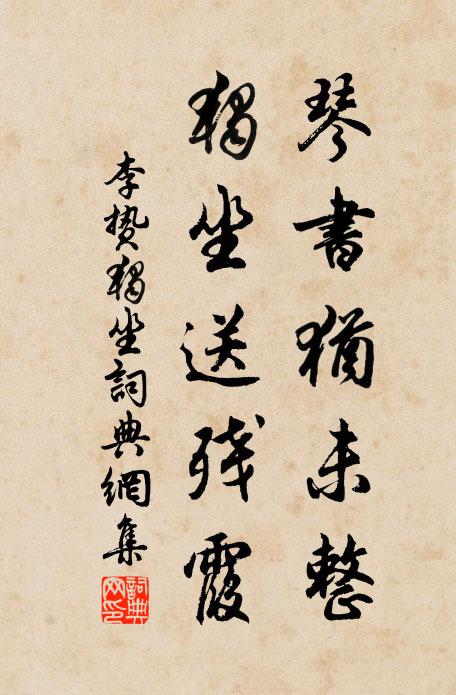 琴書猶未整
獨坐送残霞
李贄獨坐詞典網集
詞典網印